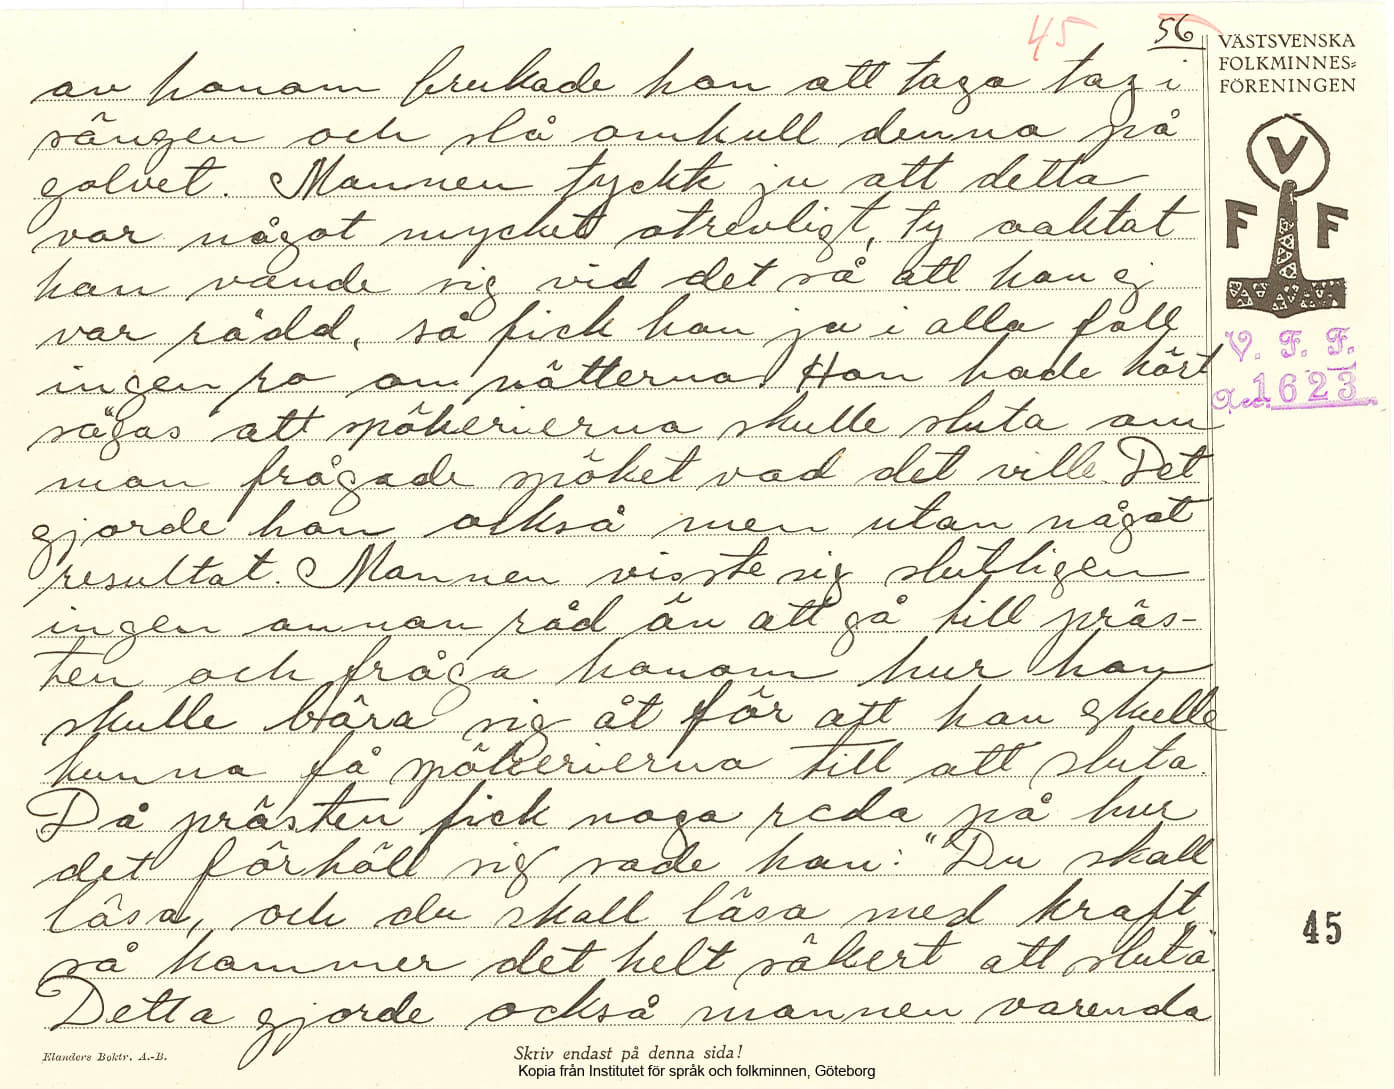 45
56
VÄSTSVENSKA
FOLKMINNES=
FÖRENINGEN
V
F F
V. F. F.
Acc. 1623
av honom brukade han att taga tag i
sängen och slå omkull denna på
golvet. Mannen tyckte ju att detta
var något mycket otrevligt, ty oaktat
han vande sig vid det så att han ej
var rädd, så fick han ju i alla fall
ingen ro om nätterna Han hade hört
sägas att spökerierna skulle sluta om
man frågade spöket vad det ville. Det
gjorde han också men utan något
resultat. Mannen visste sig slutligen
ingen annan råd än att gå till präs-
ten och fråga honom hur han
skulle bära sig åt för att han skulle
kunna få spökerierna till att sluta.
Då prästen fick noga reda på hur
det förhöll sig sade han: "Du skall
läsa, och du skall läsa med kraft,
så kommer det helt säkert att sluta"
Detta gjorde också mannen varenda
45
Elanders Boktr. A.-B.
Skriv endast på denna sida!
Kopia från Institutet för språk och folkminnen, Göteborg